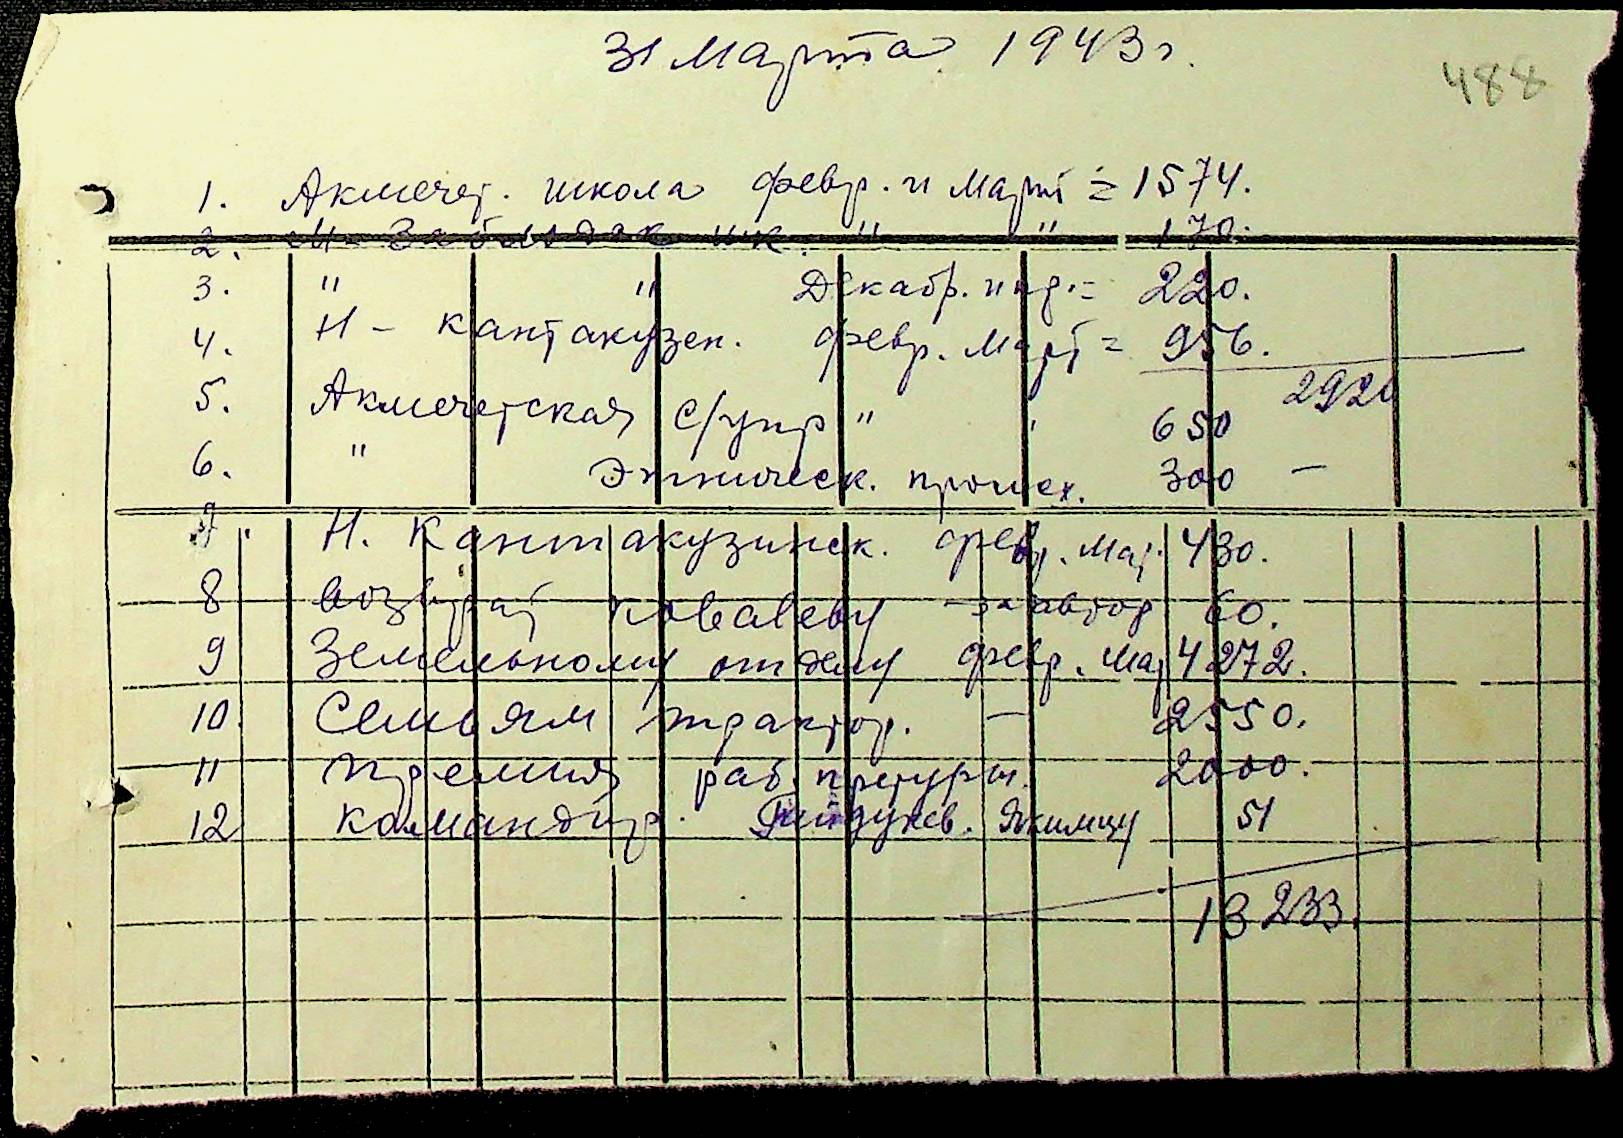 31 Марта 1943 г.
488
1. Акмечет. школа февр. и март = 1574.
2. " " 170.
3. " " Декабр. = 220.
4. Н-кантакузен. февр. март = 956.
2920
5. Акмечетская с/упр " " 650
6. " Этническ. проись. 300 –
7. Н. Кантакузинск. февр. мар. 430.
8 возврат Ковалеву за автор 60.
9 Земельному отделу февр. мар 4272.
10. Семьям трактор. – 2550.
11 премия раб. претуры. 2000.
12 командир. Якимцу 51
13233.